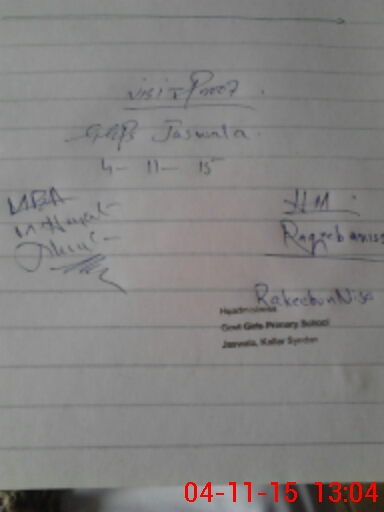 Visit Proof.
GGPS Jaswala.
4- 11- 15
MEA
M. Hayat
HM.
Raqeebunisa
RakeebunNisa
Headmistress
Govt Girls Primary School
Jaswala, Kallar Syedan
04-11-15 13:04